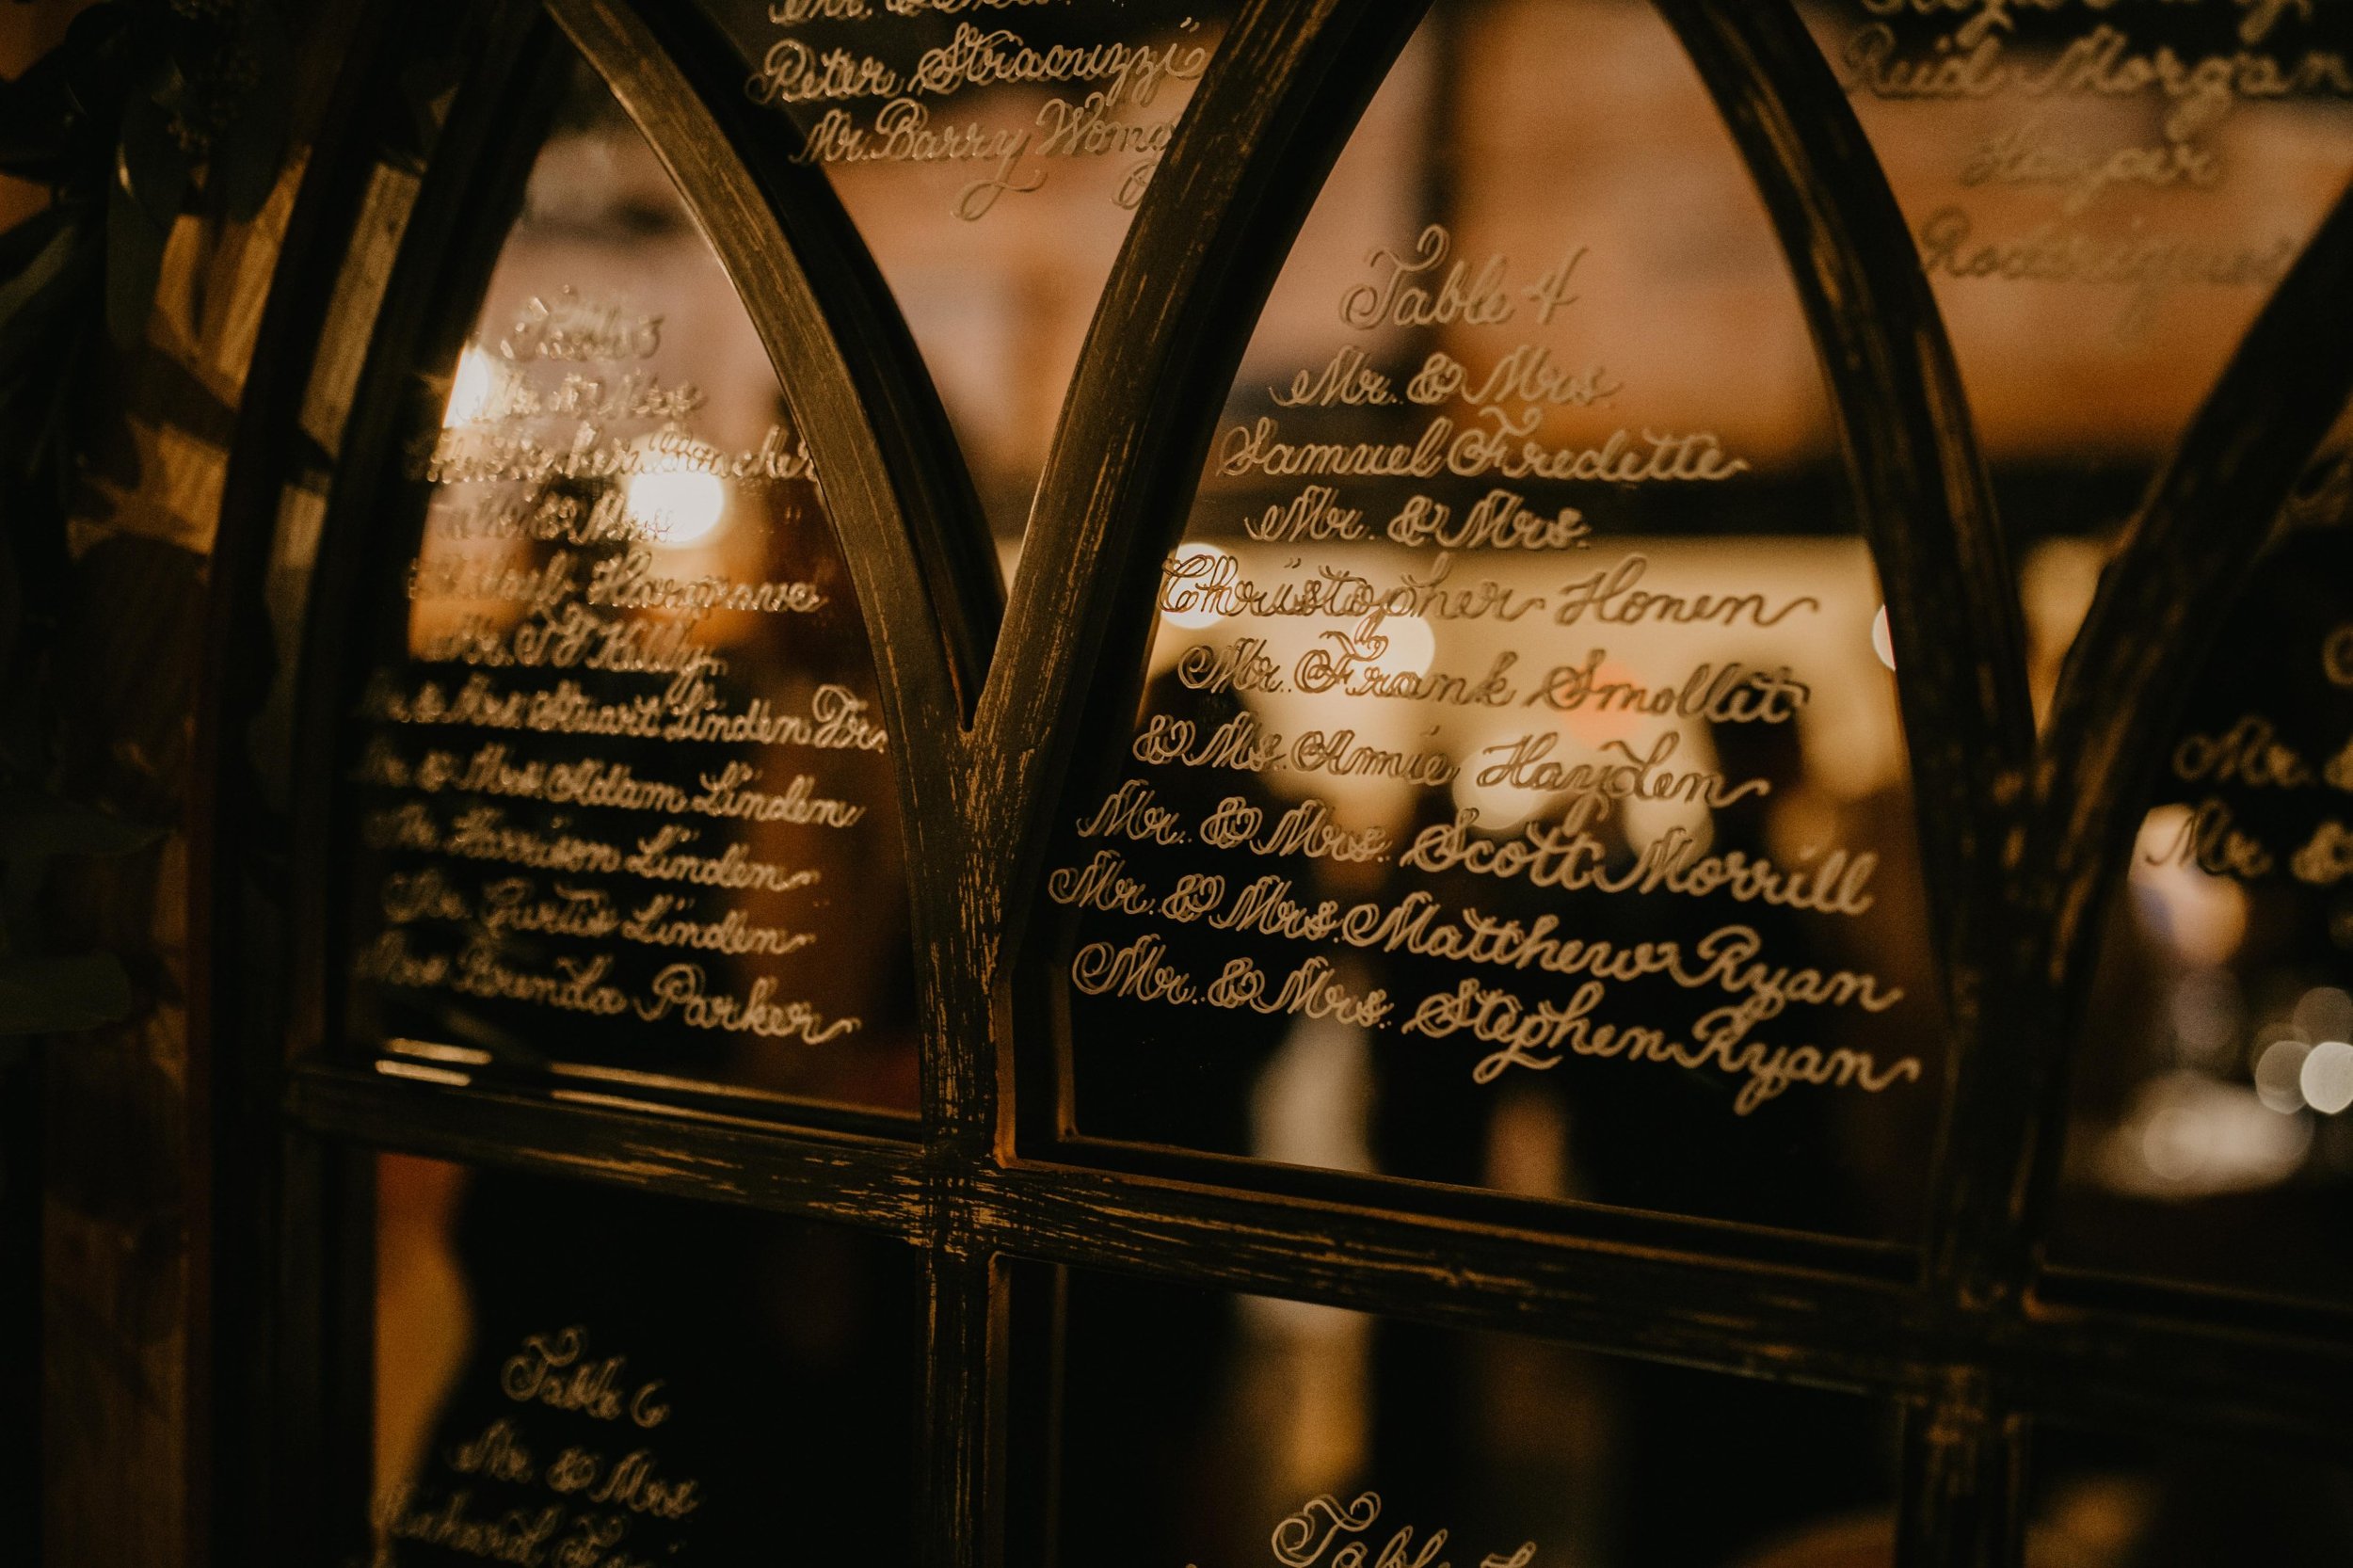 Peter Stracuzzi
Mr. Barry Wong
Reid Morgan
Harper
Rodriguez
Table 3
Mr. & Mrs.
Boucher
& Mrs.
Hargrave
Mr. TJ Kelly
Mr. & Mrs. Stuart Linden Jr.
Mr. & Mrs. Adam Linden
Mr. Harrison Linden
Mr. Curtis Linden
Mrs. Brenda Parker
Table 4
Mr. & Mrs.
Samuel Fredette
Mr. & Mrs.
Christopher Honen
Mr. Frank Smollat
& Ms. Amie Hayden
Mr. & Mrs. Scott Morrill
Mr. & Mrs. Matthew Ryan
Mr. & Mrs. Stephen Ryan
Mr. &
Mr. &
Table 6
Mr. & Mrs.
Richard
Table